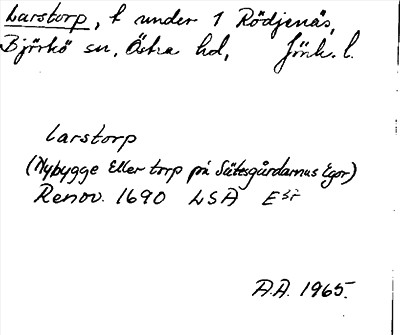 Larstorp, t under 1 Rödjenäs,
Björkö sn, Östra hd, Jönk. l.
Larstorp
(Nybygge Eller torp på Sätesgårdarnus Egor)
Renov. 1690 LSA
A.A. 1965.